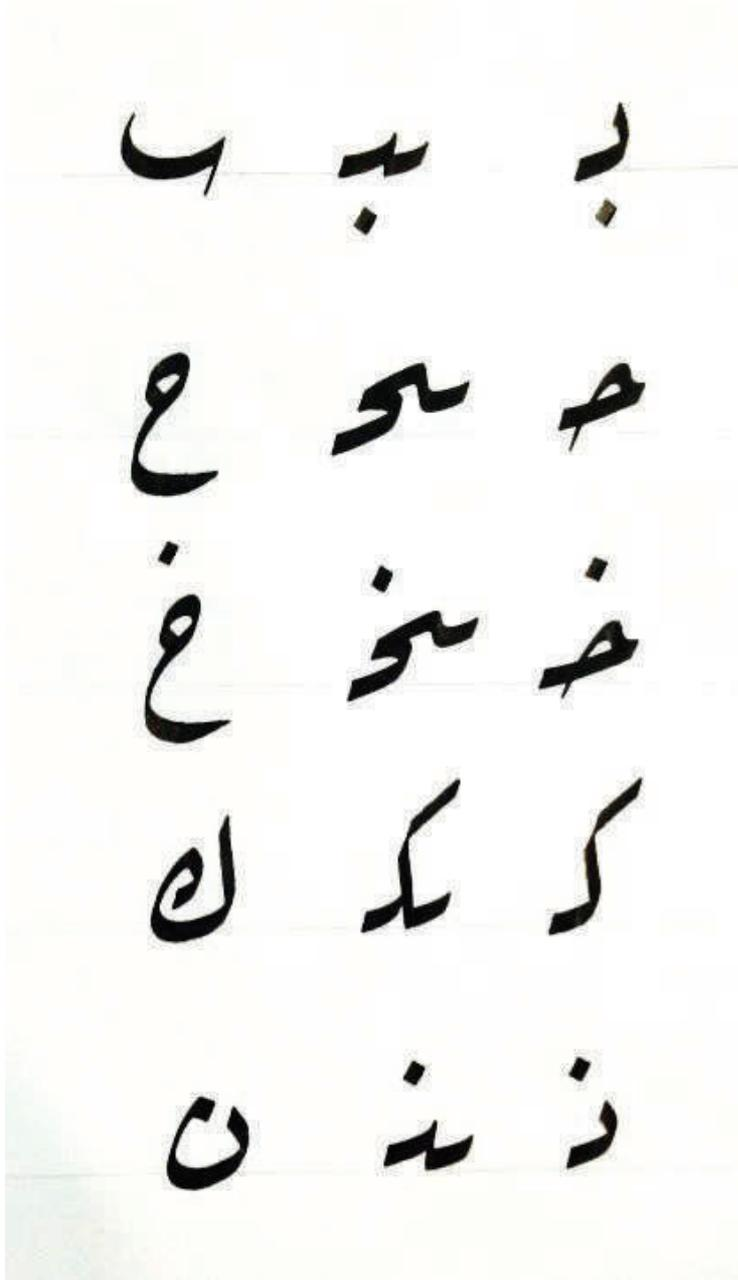 بـ ـبـ ٮ
حـ ـحـ ح
خـ ـخـ خ
كـ ـكـ ك
نـ ـنـ ن